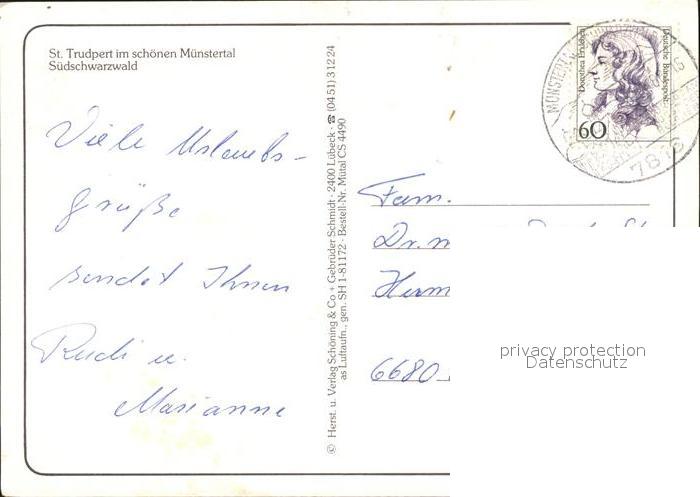 St. Trudpert im schönen Münstertal
Südschwarzwald
Viele Urlaubs-
grüße
sendet Ihnen
Rudi u.
Marianne
© Herst. u. Verlag Schöning & Co + Gebrüder Schmidt · 2400 Lübeck · ☎ (04 51) 3 12 24
as Luftaufn., gen. SH 1-81172 · Bestell-Nr. Mütal CS 4490
Dorothea Erxleben
Deutsche Bundespost
60
7816
Fam.
Dr. m
Herm
6680
privacy protection
Datenschutz